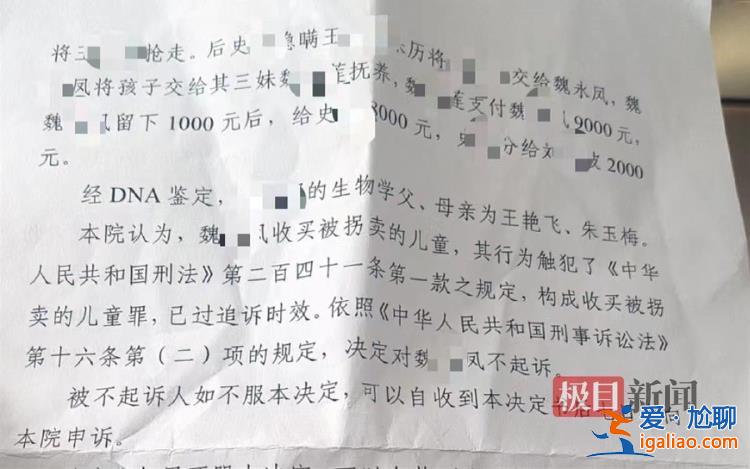 将王 抢走。后史 隐瞒王 来历将 交给魏永凤,魏
凤将孩子交给其三妹魏 莲抚养,魏 莲支付魏 凤9000元,
魏 凤留下1000元后,给史 8000元,史 分给刘 友2000
元。
经DNA鉴定, 的生物学父、母亲为王艳飞、朱玉梅。
本院认为,魏 凤收买被拐卖的儿童,其行为触犯了《中华
人民共和国刑法》第二百四十一条第一款之规定,构成收买被拐
卖的儿童罪,已过追诉时效。依照《中华人民共和国刑事诉讼法》
第十六条第(二)项的规定,决定对魏 凤不起诉。
被不起诉人如不服本决定,可以自收到本决定 向
本院申诉。
极目新闻
爱·尬聊
igaliao.com